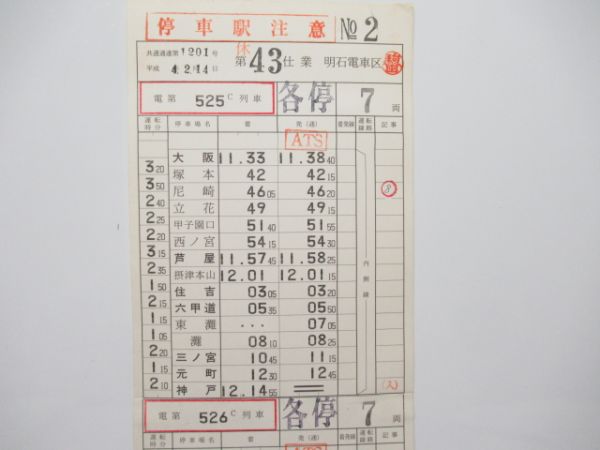 停車駅注意 №2
共通適達第1201号
平成 4.2.14日
第休43仕業 明石電車区
電第 525C列車 各停 7両
運転時分 停車場名 着 発(通) 着発線 運転線路 記事
ATS
大阪 11.33 11.38 40
3 20 塚本 42 42 15
3 50 尼崎 46 05 46 20 8
2 40 立花 49 49 15
2 25 甲子園口 51 40 51 55
2 20 西ノ宮 54 15 54 30
3 15 芦屋 11.57 45 11.58 25
2 35 摂津本山 12.01 12.01 15 内側線
1 50 住吉 03 05 03 20
2 15 六甲道 05 35 05 50
1 15 東灘 ... 07 05
1 05 灘 08 10 08 25
2 20 三ノ宮 10 45 11 15
1 15 元町 12 30 12 45
2 10 神戸 12.14 55 (入)
電第 526C列車 各停 7両
運転時分 停車場名 着 発(通) 着発線 運転線路 記事
ATS